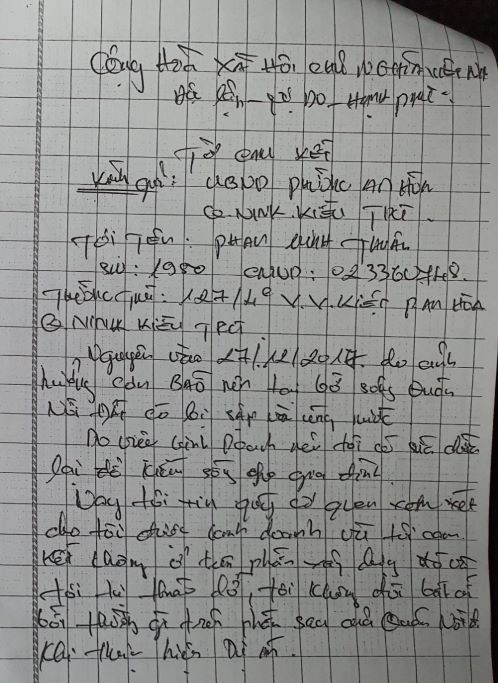 Cộng Hoà XÃ Hội chủ NGHĨA Việt NM
Độ lập - Tự Do - Hạnh phúc.
Tờ cam kết
Kính gửi: UBND phường AN HÒA
Q. NINH KIỀU TPCT.
Tôi Tên: PHAN MINH THUẬN
Sin: 1980 CMND: 023360748.
Thường trú: 127/4e V.V.Kiệt P AN HÒA
Q NINH KIỀU TPCT
Nguyên vào 27/12/2017. do ảnh
hưởng cơn BÃO nên tại bờ sông
có bị sập và nước
Do việc kinh Doanh nên tôi có sửa
lại để kiếm sống cho gia đình
Nay tôi xin quý cơ quan xem xét
cho tôi được kinh doanh và tôi cam
kết không ở trên phần
tôi tự tháo dỡ, tôi không đòi bất cứ
bồi thường gì trên phần sau của
khi thực hiện Dự án.